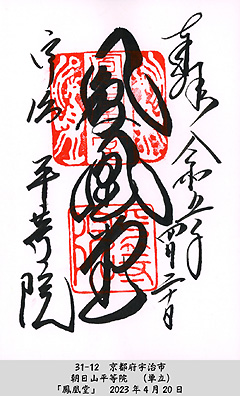 奉拝
令和五年
四月二十日
鳳凰堂
宇治
平等院
31-12　京都府宇治市
朝日山平等院　（単立）
「鳳凰堂」　2023年4月20日